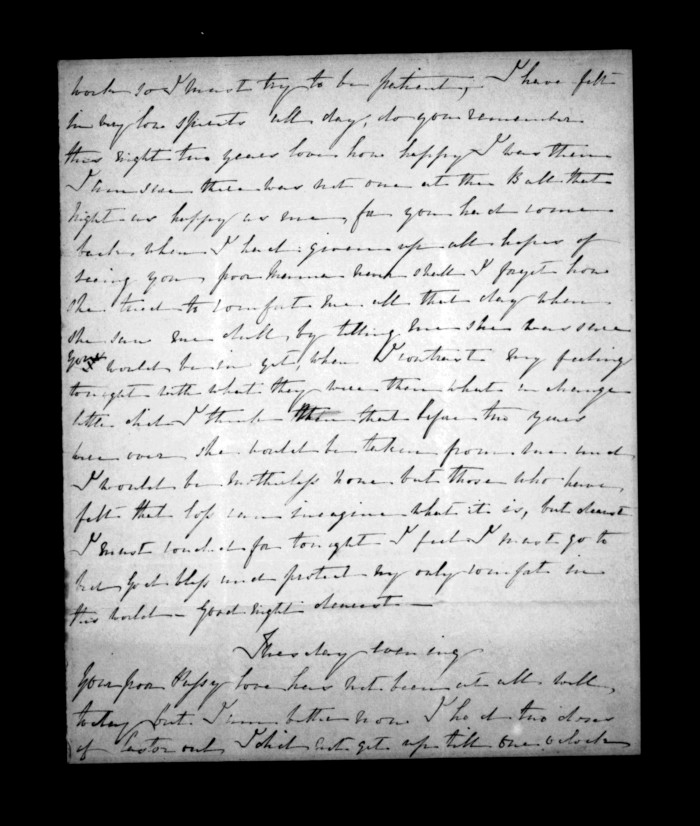 work so I must try to be patient, I have felt
in very low spirits all day, do you remember
this night two years love how happy I was then
I am sure there was not one at the Ball that
night as happy as me, for you had come
back when I had given up all hopes of
seeing you, poor Mamma never shall I forget how
she tried to comfort me all that day when
she saw me dull, by telling me she was sure
you would be in yet, when I contrast my feeling
tonight with what they were then what a change
little did I think that before two years
were over she would be taken from me and
I would be motherless none but those who have
felt that loss can imagine what it is, but dearest
I must conclude for tonight I feel I must go to
bed God bless and protect my only comfort in
this world - Good night dearest -
Tuesday evening
Your poor Pussy love has not been at all well,
today but I am better now I had two doses
of Castor oil I did not get up till one o'clock